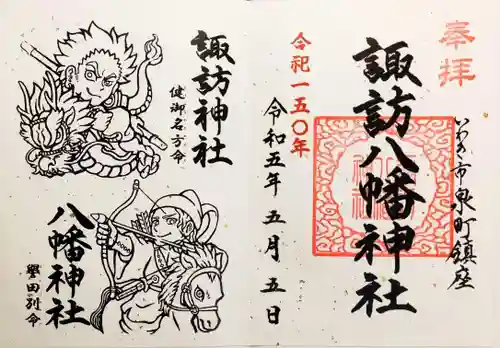 奉拝
いわき市泉町鎮座
諏訪八幡神社
合祀一五〇年
令和五年五月五日
諏訪神社
健御名方命
八幡神社
譽田別命